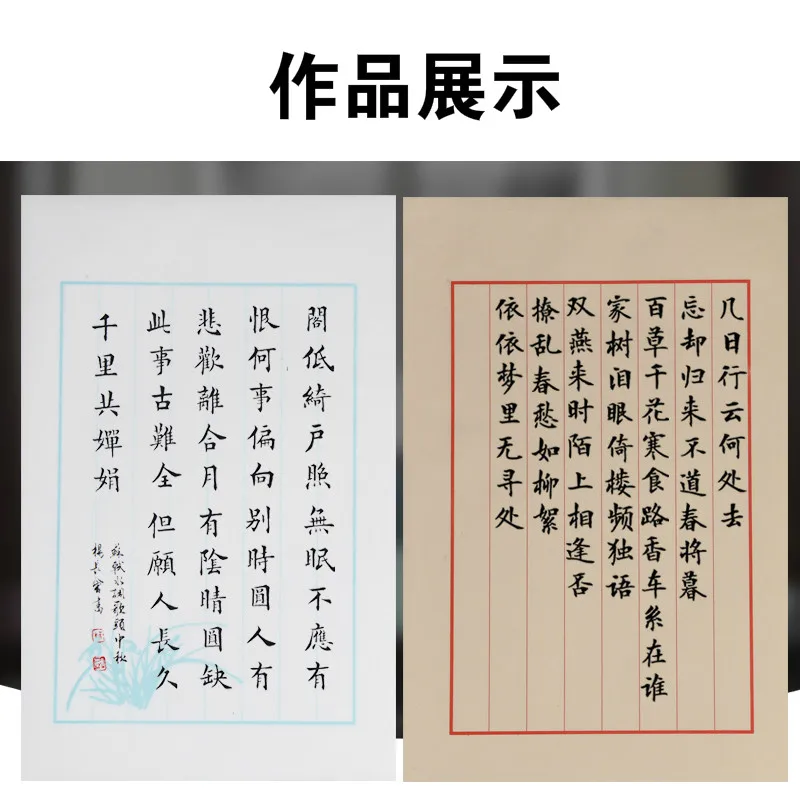 作品展示
閣低綺户照無眠不應有
恨何事偏向別時圓人有
悲歡離合月有陰晴圓缺
此事古難全但願人長久
千里共嬋娟
蘇軾水調歌頭中秋
几日行云何处去
忘却归来不道春将暮
百草千花寒食路香车系在谁
家树泪眼倚楼频独语
双燕来时陌上相逢否
撩乱春愁如柳絮
依依梦里无寻处